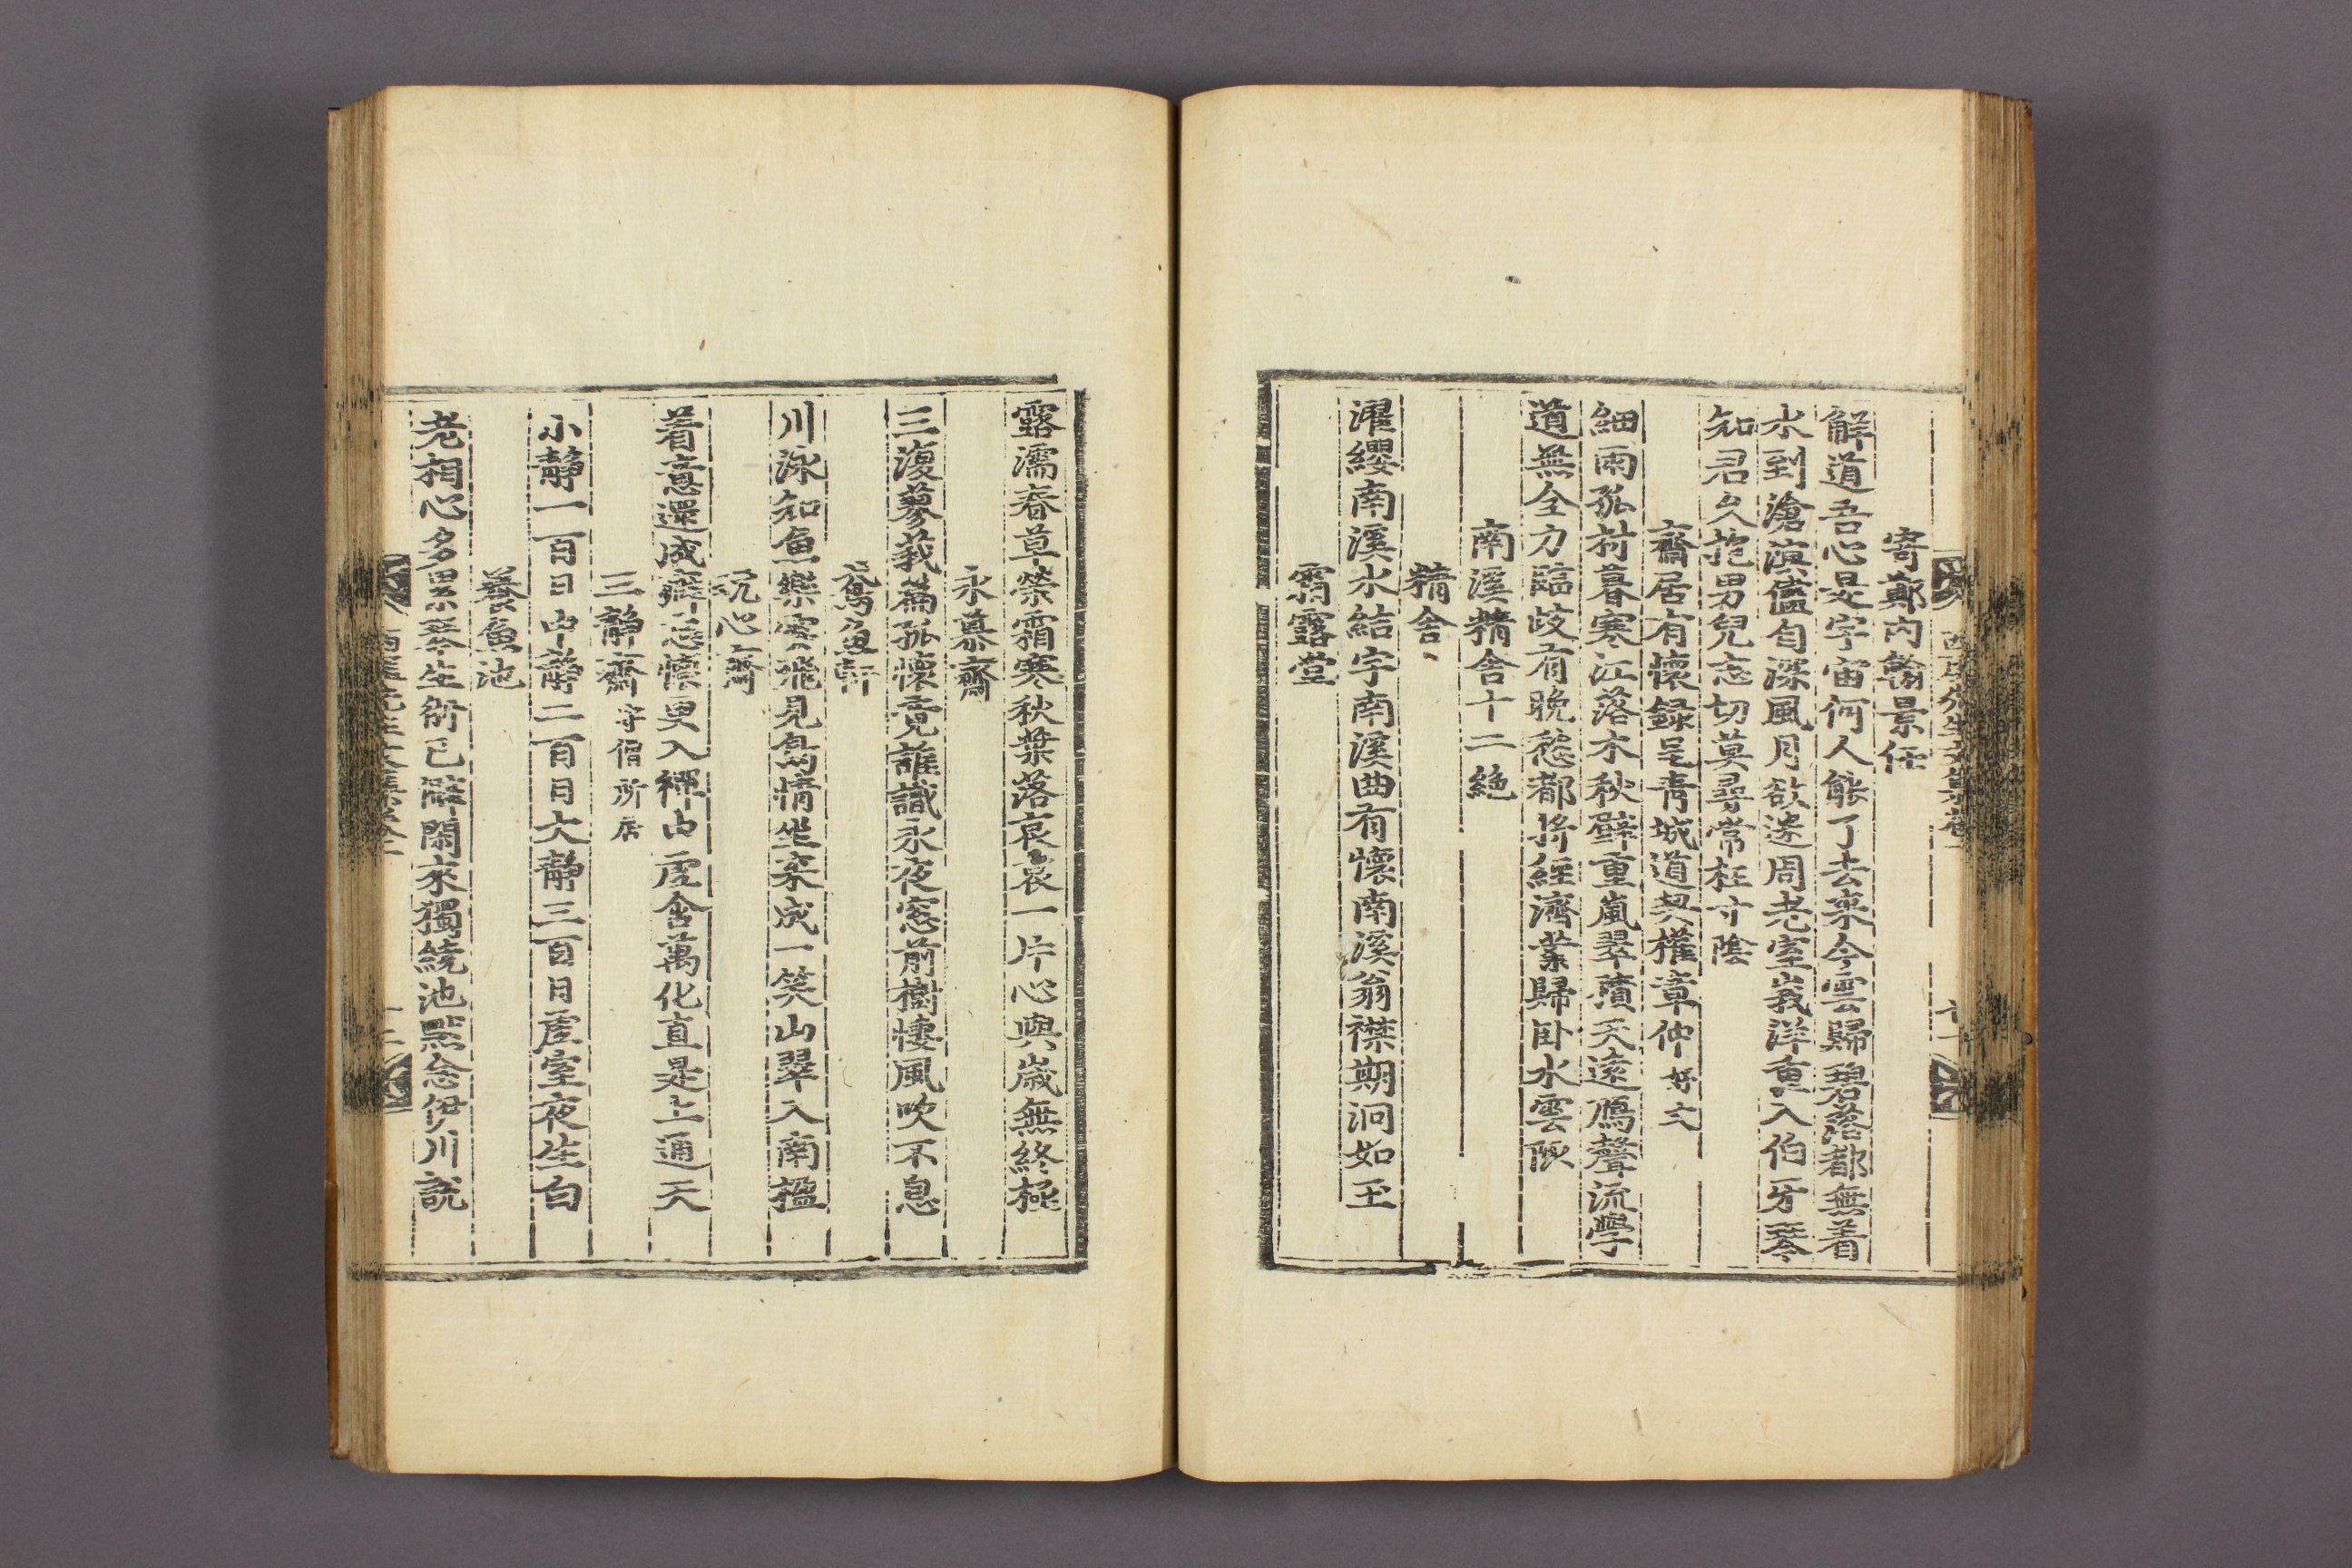 寄鄭內翰景任
解道吾心是宇宙何人能了去來今雲歸碧落都無着
水到滄溟儘自深風月欲迷周老室峩洋重入伯牙琴
知君久抱男兒志切莫尋常枉寸陰
齋居有懷錄呈靑城道契權章仲 好文
細雨孤村暮寒江落木秋壁重嵐翠積天遠鴈聲流學
道無全力臨歧有晚愁都將經濟業歸卧水雲陬
南溪精舍十二絶
精舍
濯纓南溪水結宇南溪曲有懷南溪翁襟期洞如玉
霜露堂
露濡春草榮霜寒秋葉落哀哀一片心與歲無終極
永慕齋
三復蓼莪篇孤懷竟誰識永夜窓前樹悽風吹不息
鳶魚軒
川泳知魚樂雲飛見鳥情坐來成一笑山翠入南楹
玩心齋
着意還成癖忘懷更入禪由虛含萬化直是上通天
三靜齋 守僧所居
小靜一百日中靜二百日大靜三百日虛室夜生白
養魚池
老相心多累琴生術已解閑來獨繞池點念伊川說